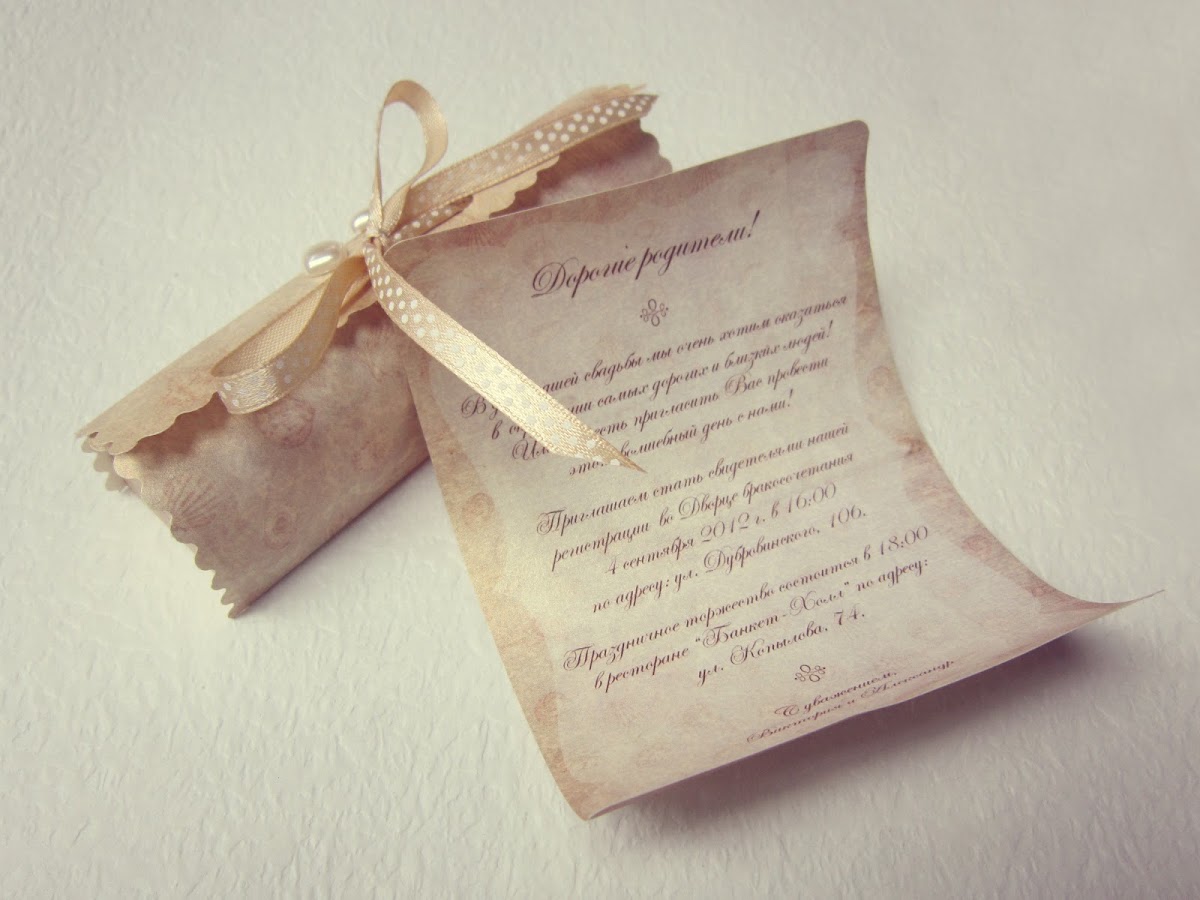 Дорогие родители!
В нашей свадьбы мы очень хотим оказаться
в самых дорогих и близких людей!
пригласить Вас провести
этот волшебный день с нами!
Приглашаем стать свидетелями нашей
регистрации во Дворце бракосочетанья
4 сентября 2012 г. в 16:00
по адресу: ул. Дубровинского, 106.
Праздничное торжество состоится в 18:00
в ресторане "Банкет-Холл" по адресу:
ул. Копылова, 74.
С уважением,
Виктория и Александр